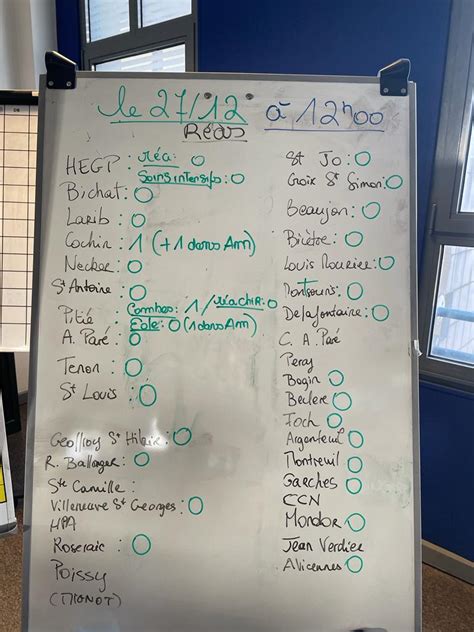 le 27/12 à 12h00
Réas
HEGP : réa : 0
Soins intensifs : 0
Bichat : 0
Larib : 0
Cochin : 1 (+1 dans Am)
Necker : 0
St Antoine : 0
Pitié : Combes : 1 / réa chir : 0
Eole : 0 (1 dans Am)
A. Paré : 0
Tenon : 0
St Louis : 0
Geoffroy St Hilaire : 0
R. Ballanger : 0
Ste Camille :
Villeneuve St Georges : 0
HPA
Roseraie : 0
Poissy
(THONOT)
St Jo : 0
Croix St Simon : 0
Beaujon : 0
Bicêtre : 0
Louis Mourier : 0
Montsouris : 0
Delafontaine : 0
C. A. Paré
Peray
Begin 0
Beclere 0
Foch 0
Argenteuil 0
Montreuil 0
Garches 0
CCN
Mondor 0
Jean Verdier
Avicennes 0